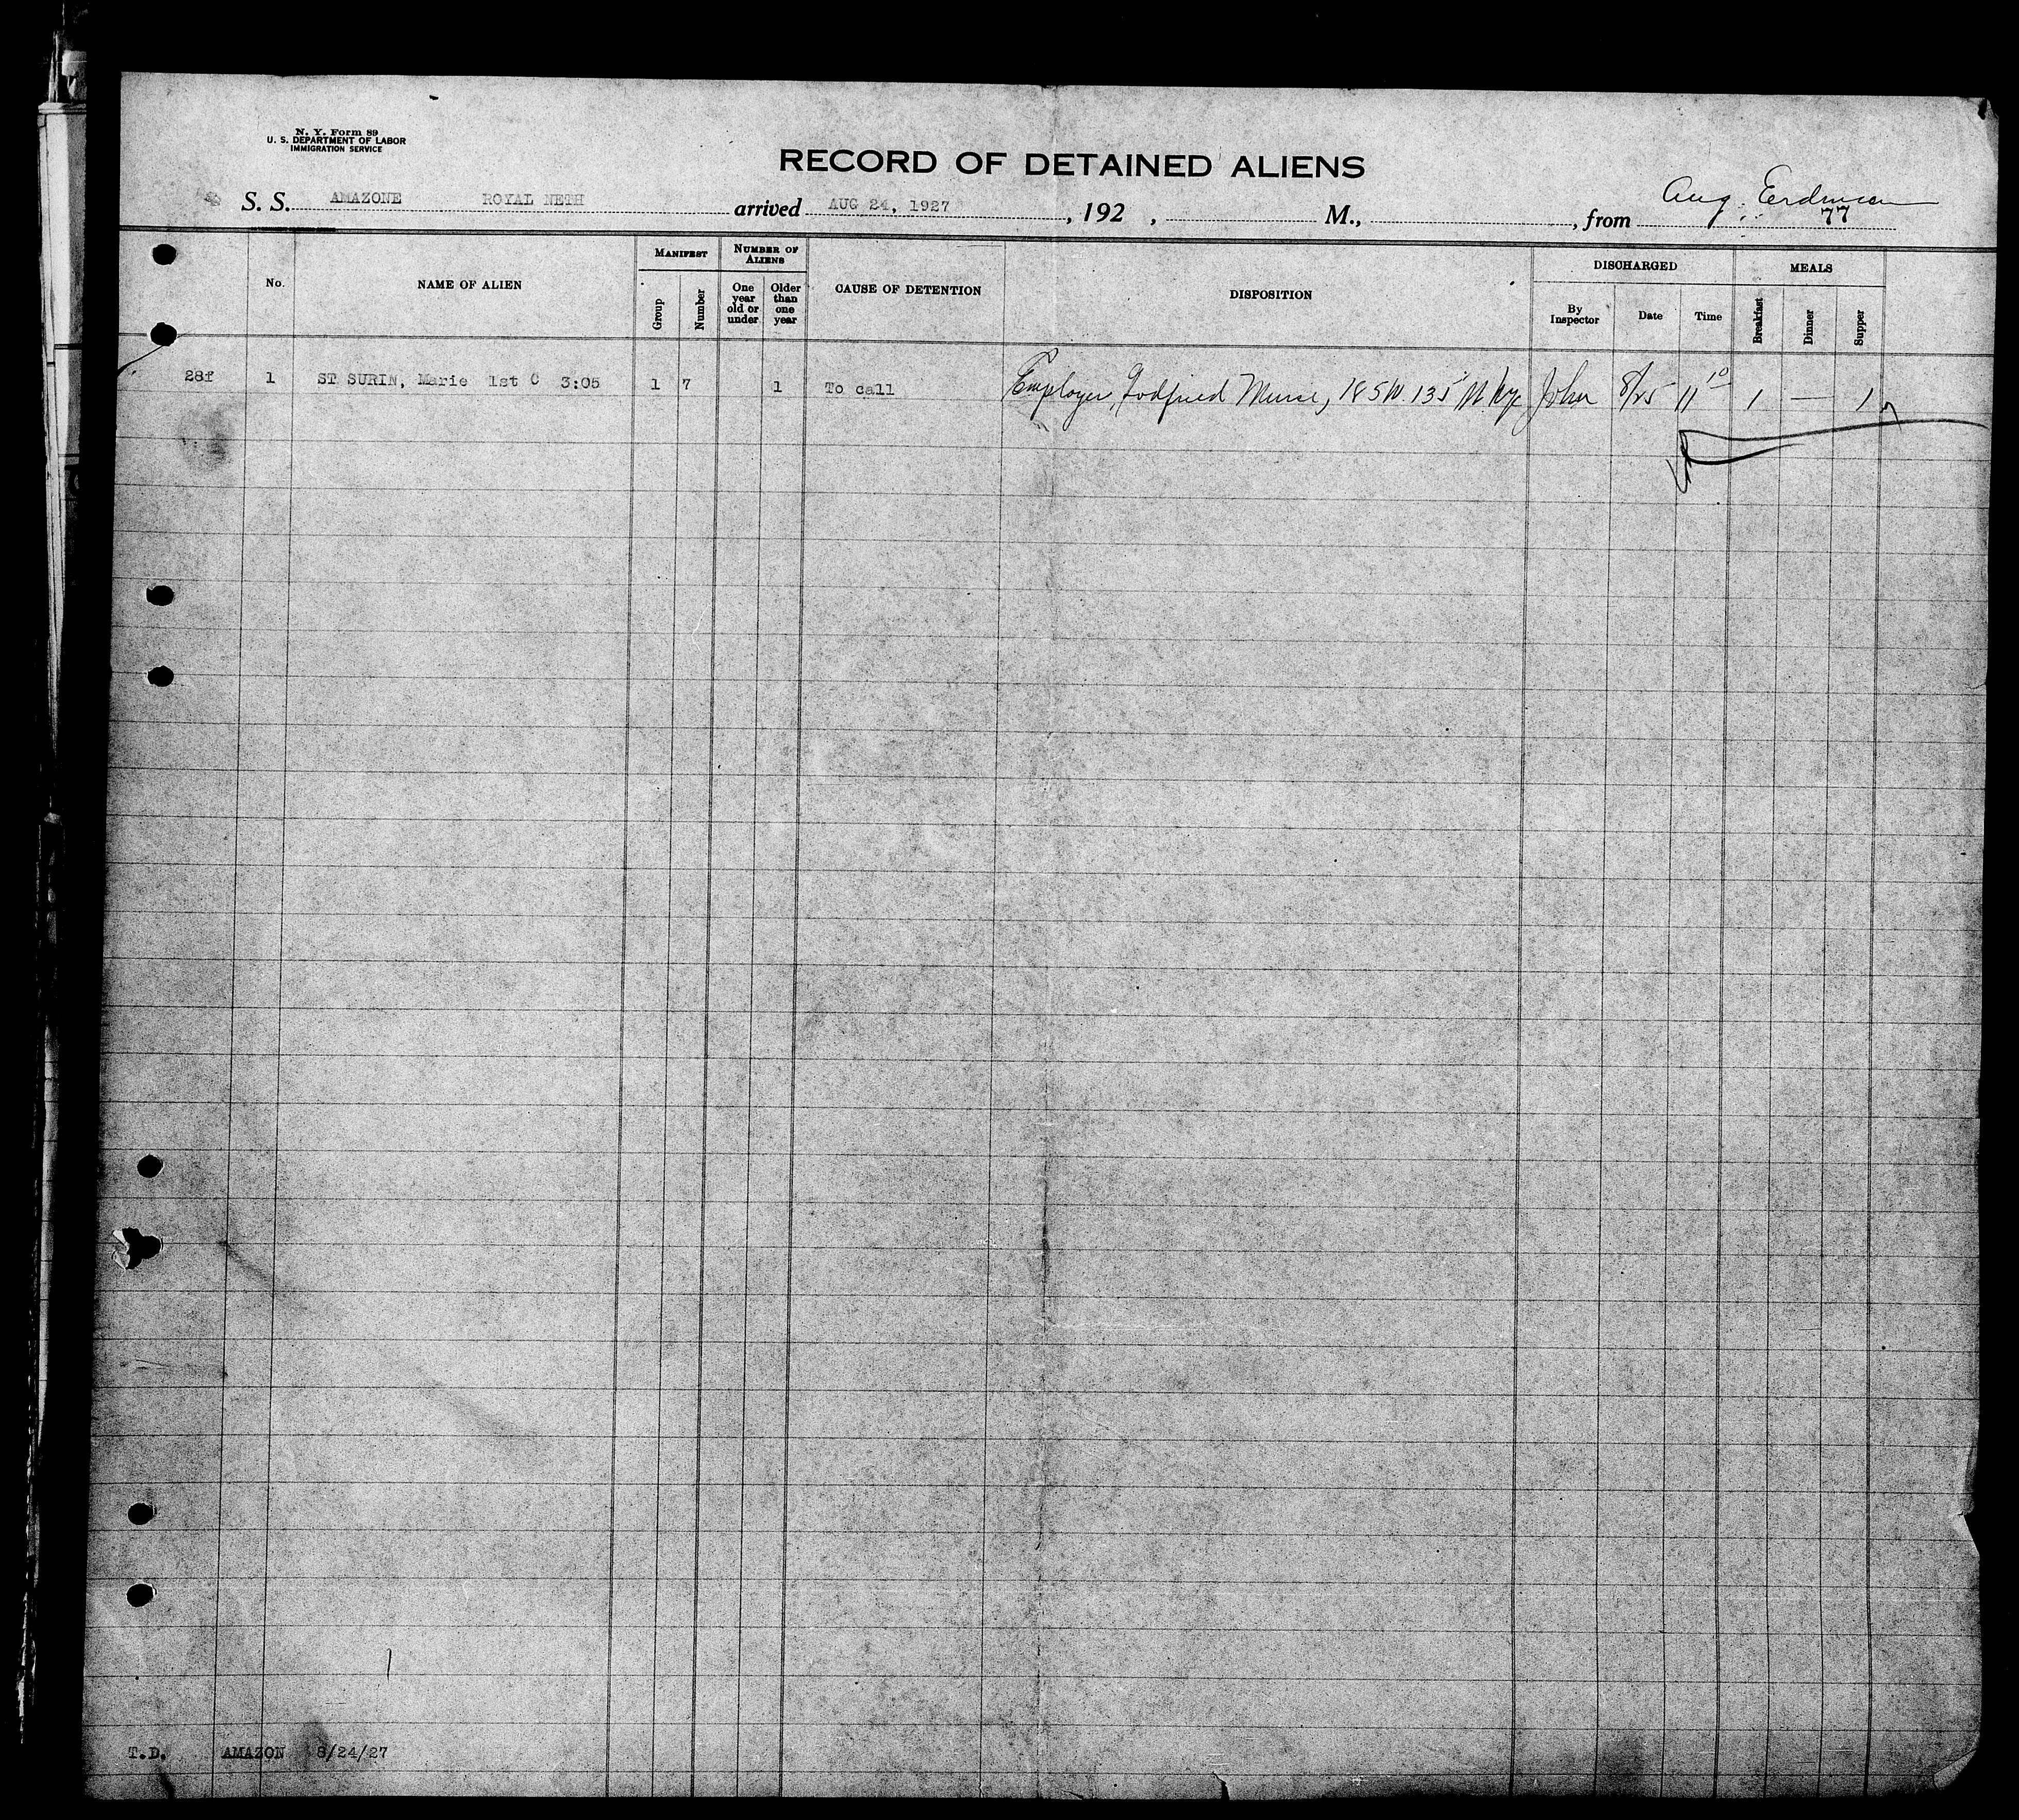 N. Y. Form 89
U. S. DEPARTMENT OF LABOR
IMMIGRATION SERVICE
RECORD OF DETAINED ALIENS
S. S. AMAZONE ROYAL NETH arrived AUG 24, 1927, 192 , M., , from Aug. Erdman
77
No.
NAME OF ALIEN
MANIFEST
Group
Number
NUMBER OF ALIENS
One year old or under
Older than one year
CAUSE OF DETENTION
DISPOSITION
DISCHARGED
By Inspector
Date
Time
MEALS
Breakfast
Dinner
Supper
28f 1 ST SURIN, Marie 1st C 3:05 1 7 1 To call Employer, 185 W. 135 8/25 11 10 1 — 1
T.D. AMAZON 8/24/27